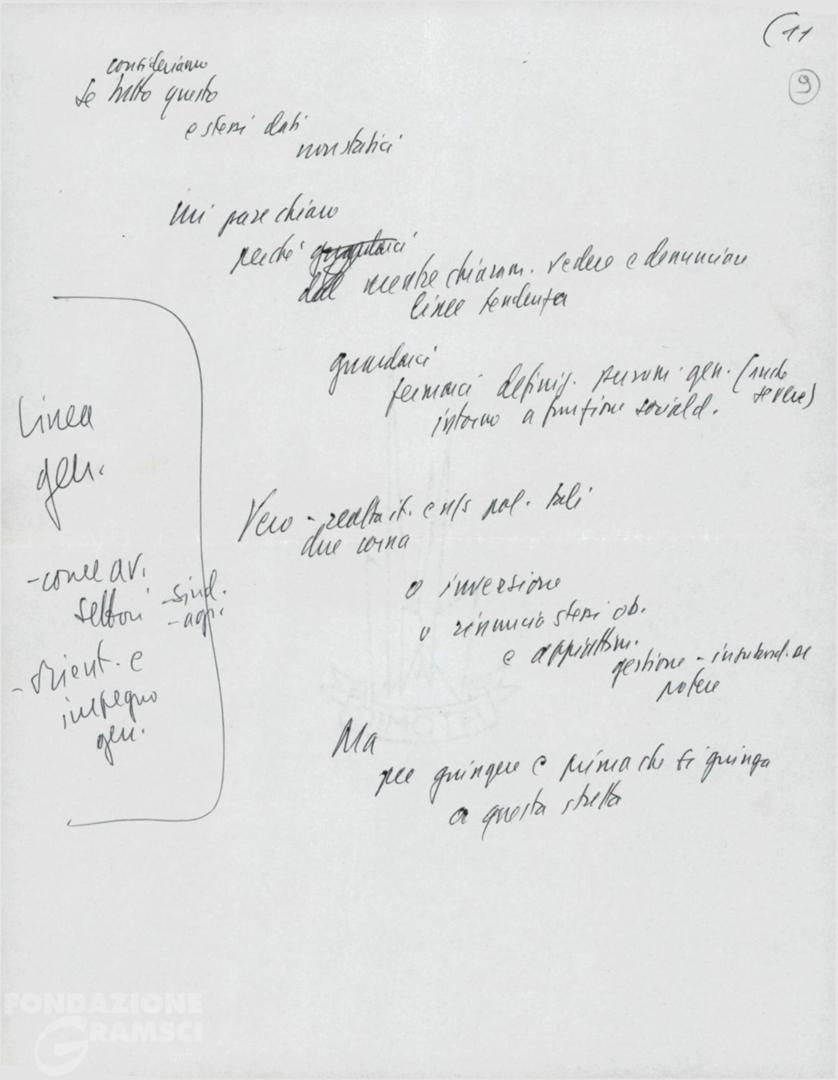 (11
9
consideriamo
se tutto questo
e stessi dati
non statici
Mi pare chiaro
perché guardarci
mentre chiaram. vedere e denunciare
linee tendenza
guardarci
fermarci definiz. gen. (
intorno a funzione sociald. severe)
Linea
gen.
Vero - realtà it. e pol. tali
due corna
- come av.
settori - sind.
- agr.
o inversione
o rinuncia stessi ob.
e appiattim.
gestione - insubord. se
potere
- orient. e
impegno
gen.
Ma
per giungere e prima che si giunga
a questa stretta
FONDAZIONE
GRAMSCI